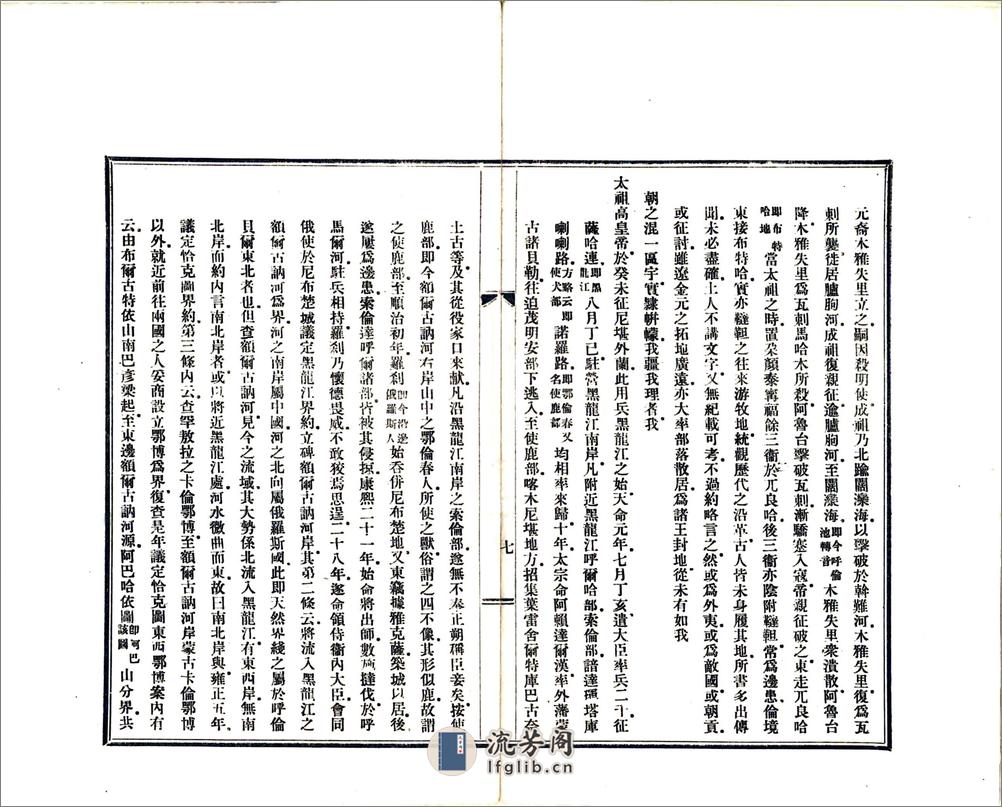 元裔木雅失里立之嗣因殺明使成祖乃北踰闊灤海以擊破於斡難河木雅失里復爲瓦
剌所襲徙居臚朐河成祖復親征逾臚朐河至闊灤海即今呼倫池轉音木雅失里衆潰散阿魯台
降木雅失里爲瓦剌馬哈木所殺阿魯台擊破瓦剌漸驕蹇入寇常親征破之東走兀良哈
即布特哈地當太祖之時置朵顏泰寗福餘三衞於兀良哈後三衞亦陰附韃靼常爲邊患倫境
東接布特哈實亦韃靼之往來游牧地統觀歷代之沿革古人皆未身履其地所書多出傳
聞未必盡確土人不講文字又無紀載可考不過約略言之然或爲外夷或爲敵國或朝貢
或征討雖遼金元之拓地廣遠亦大率部落散居爲諸王封地從未有如我
朝之混一區宇實隸帡幪我疆我理者我
太祖高皇帝於癸未征尼堪外蘭此用兵黑龍江之始天命元年七月丁亥遣大臣率兵二千征
薩哈連即黑龍江八月丁巳駐營黑龍江南岸凡附近黑龍江呼爾哈部索倫部諳達瑪塔庫
喇喇路方略云即使犬部諾羅路即鄂倫春又名使鹿部均相率來歸十年太宗命阿賴達爾漢率外藩蒙
古諸貝勒往追茂明安部下逃入至使鹿部喀木尼堪地方招集葉雷舍爾特庫巴古奈
土古等及其從役家口來獻凡沿黑龍江南岸之索倫部遂無不奉正朔稱臣妾矣按使
鹿部即今額爾古訥河右岸山中之鄂倫春人所使之獸俗謂之四不像其形似鹿故謂
之使鹿部至順治初年羅刹即今沿邊俄羅斯人始吞併尼布楚地又東竊據雅克薩築城以居後
遂屢爲邊患索倫達呼爾諸部皆被其侵掠康熙二十一年始命將出師數施撻伐於呼
馬爾河駐兵相持羅刹乃懷德畏威不敢狡焉思逞二十八年遂命領侍衞內大臣會同
俄使於尼布楚城議定黑龍江界約立碑額爾古訥河岸其第二條云將流入黑龍江之
額爾古訥河爲界河之南岸屬中國河之北向屬俄羅斯國此即天然界綫之屬於呼倫
貝爾東北者也但查額爾古訥河見今之流域其大勢係北流入黑龍江有東西岸無南
北岸而約內言南北岸者或以將近黑龍江處河水微曲而東故曰南北岸與雍正五年
議定恰克圖界約第三條內云查罕敖拉之卡倫鄂博至額爾古訥河岸蒙古卡倫鄂博
以外就近前往兩國之人妥商設立鄂博爲界復查是年議定恰克圖東西鄂博案內有
云由布爾古特依山南巴彥梁起至東邊額爾古訥河源阿巴哈依圖即阿巴該圖山分界共
七
流芳阁
lfglib.cn